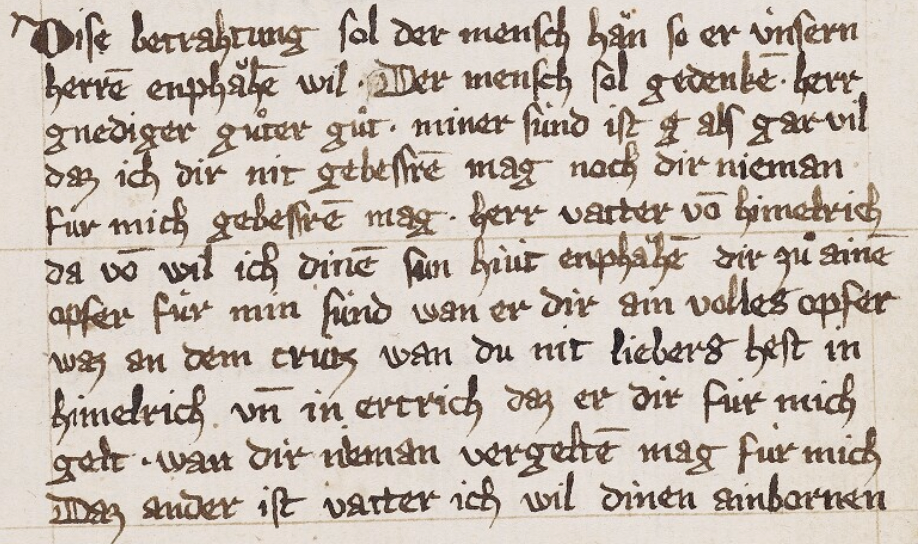 Dise betrahtung sol der mensch hän so er únsern
herrē enphahē wil · Der mensch sol gedenkē · herr
gnediger gůter gůt · miner súnd ist als gar vil
daz ich dir nit gebessrē mag noch dir nieman
fúr mich gebessrē mag · herr vatter vō himelrich
da vō wil ich dinē sun hiút enphahē dir zů ainē
opfer fúr min súnd wan er dir ain volles opfer
waz an dem crútz wan du nit liebers hest in
himelrich vn̄ in ertrich daz er dir fúr mich
gelt · wan dir nieman vergeltē mag fúr mich
Daz ander ist vatter ich wil dinen ainbornen